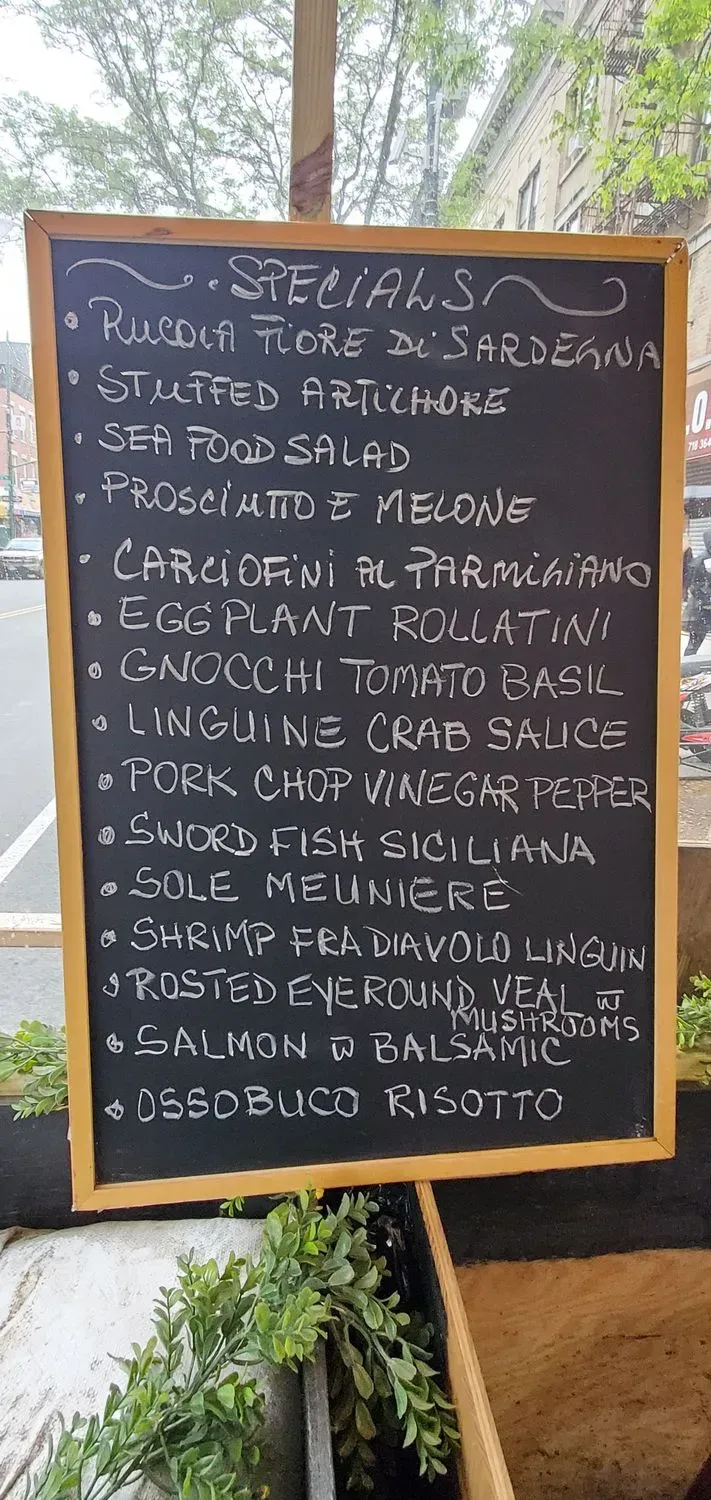 SPECiALS
• RUCOLA FIORE Di SARDEGNA
• STUFFED ARTICHOKE
• SEA FOOD SALAD
• PROSCIUTTO E MELONE
• CARCIOFINI AL PARMIGIANO
• EGGPLANT ROLLATINI
• GNOCCHI TOMATO BASIL
• LINGUINE CRAB SAUCE
• PORK CHOP VINEGAR PEPPER
• SWORD FISH SICILIANA
• SOLE MEUNIERE
• SHRIMP FRA DIAVOLO LINGUIN
• ROSTED EYEROUND VEAL w̅
MUSHROOMS
• SALMON w̅ BALSAMIC
• OSSOBUCO RISOTTO
.O.